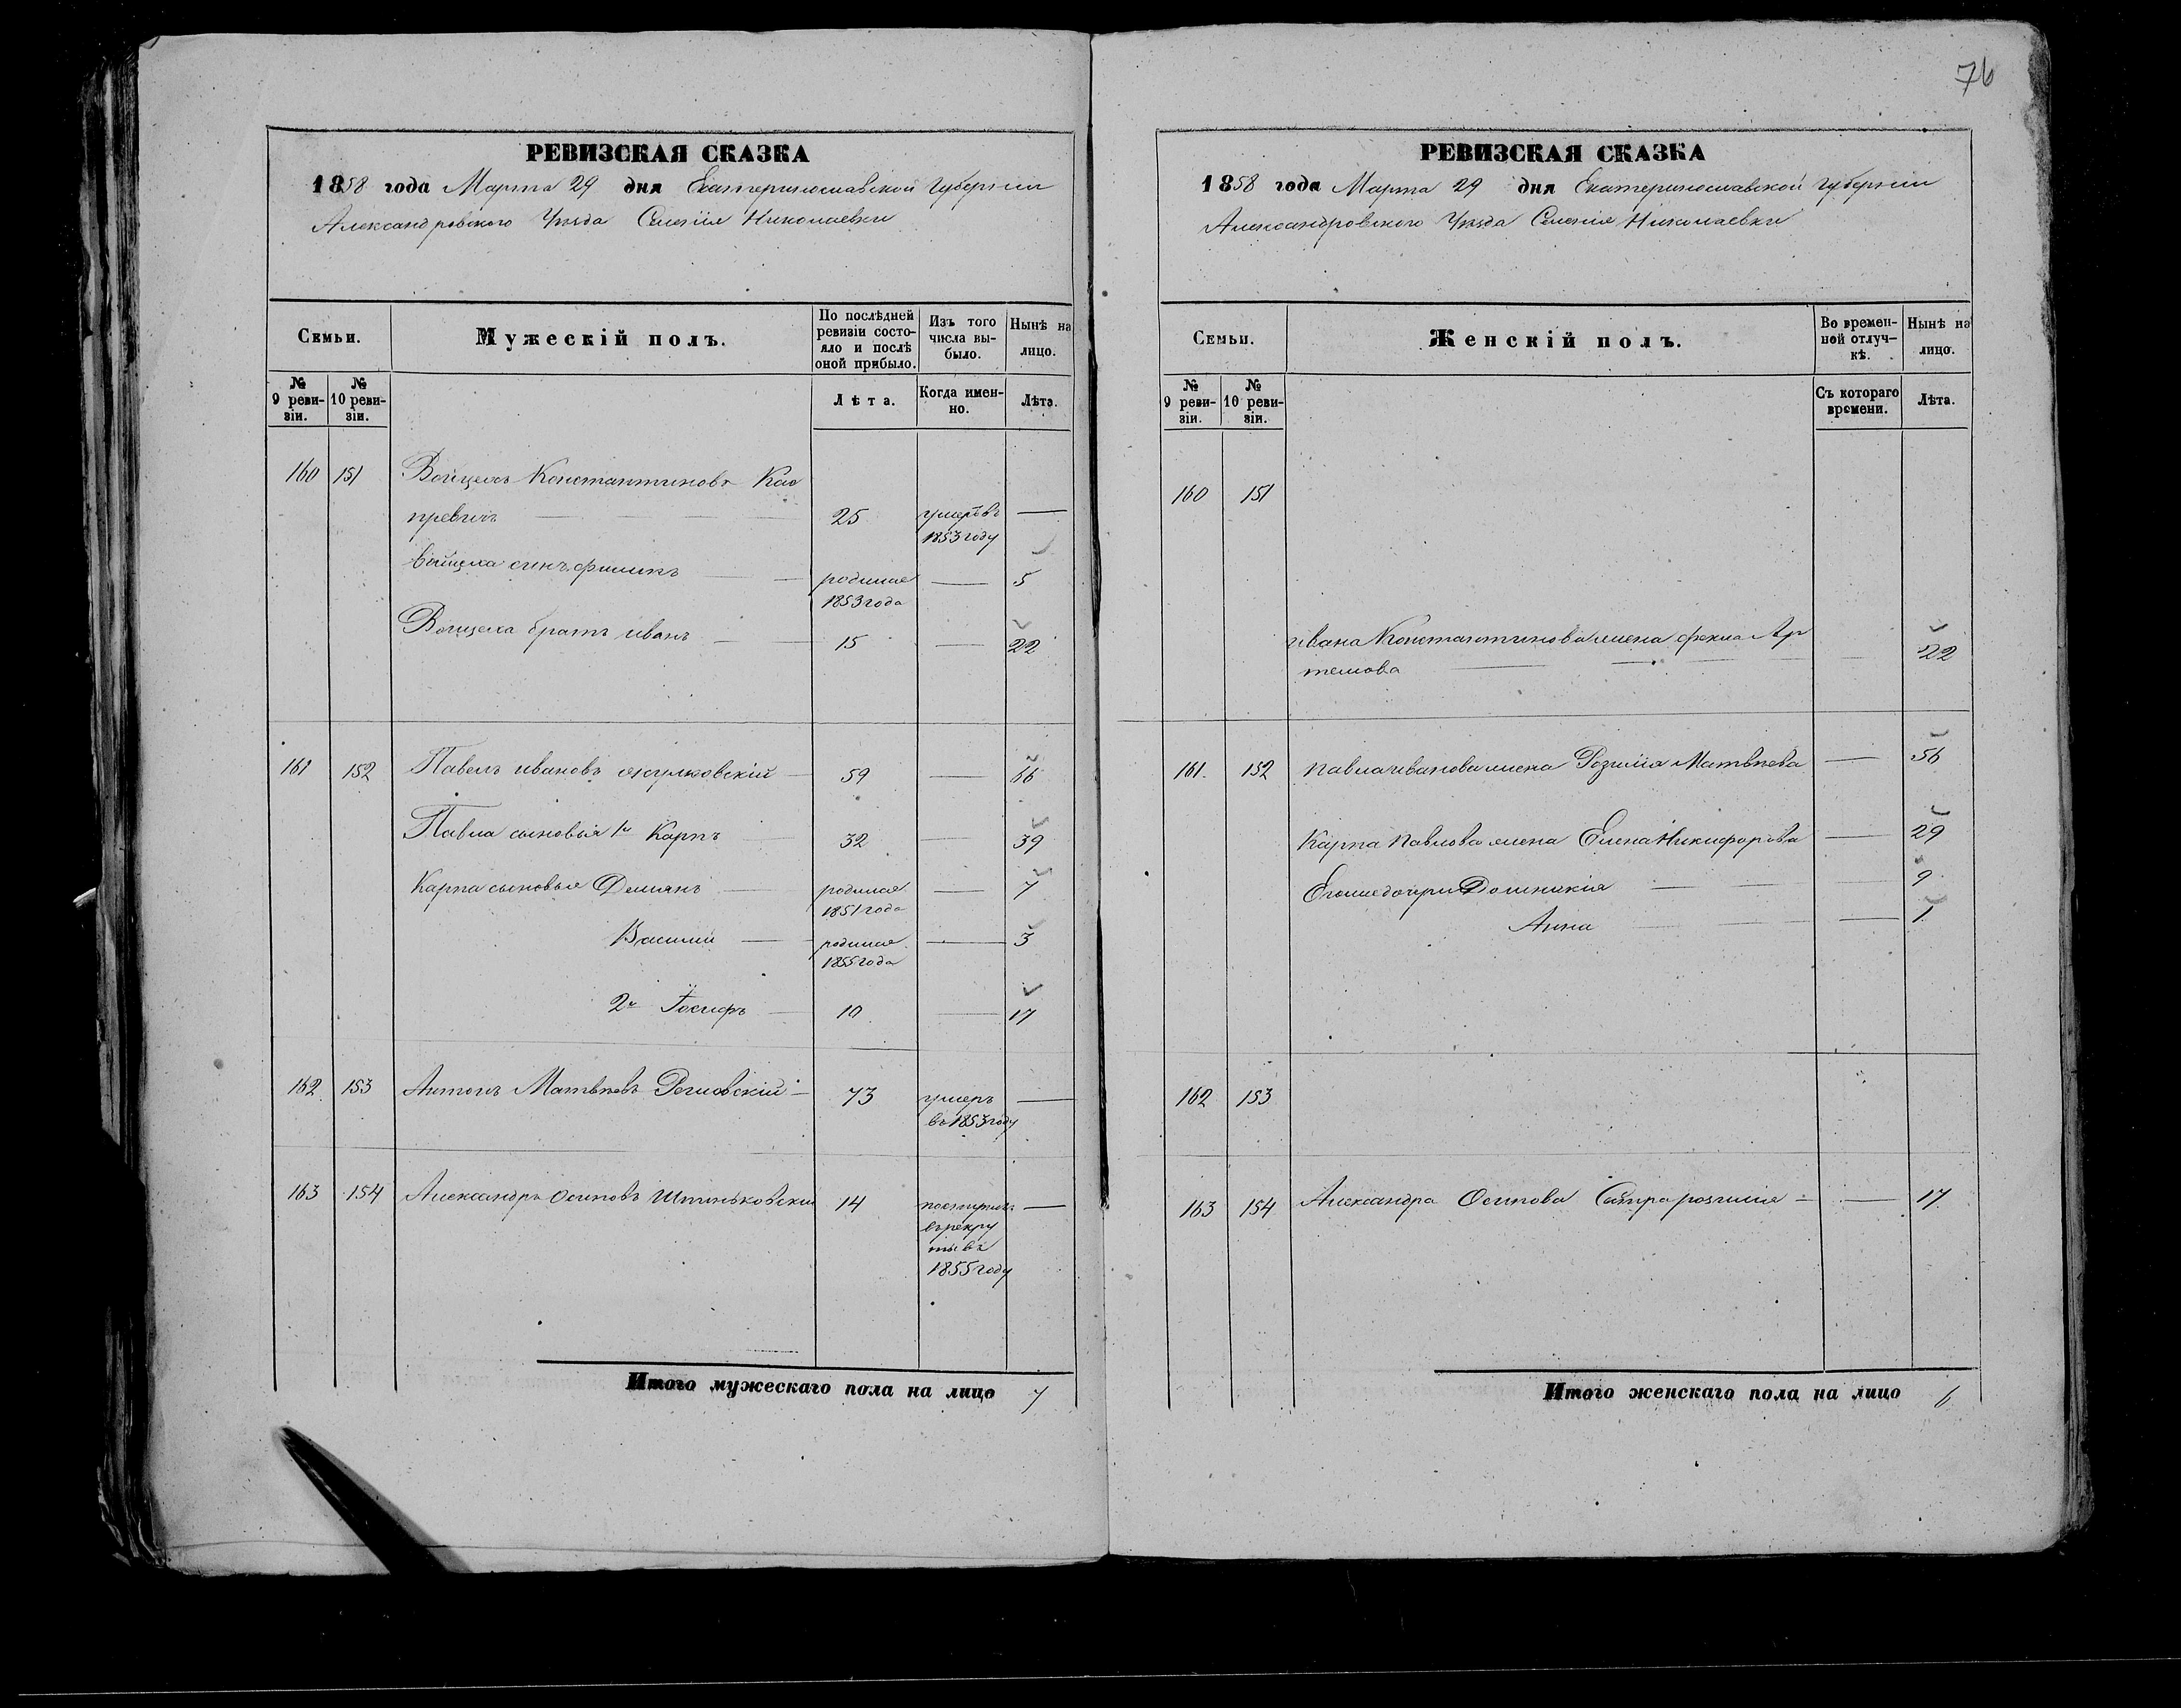 76
РЕВИЗСКАЯ СКАЗКА
1858 года Марта 29 дня Екатеринославской Губернии
Александровского Уѣзда Селенія Николаевки
Семьи.
Мужескій полъ.
По послѣдней ревизіи состояло и послѣ оной прибыло.
Изъ того числа выбыло.
Нынѣ на лицо.
№ 9 ревизіи.
№ 10 ревизіи.
Лѣта.
Когда именно.
Лѣта.
160 151 Войцехъ Константиновъ Кас
превичъ 25 умеръ въ —
1853 году
Войцеха сынъ родился — 5
1853 года
Войцеха братъ иванъ 15 — 22
161 152 Павелъ ивановъ 59 — 66
Павла сыновья 1й Карпъ 32 — 39
Карпа сыновья Демянъ родился — 7
1851 года
Василий родился — 3
1855 года
2й Іосифъ 10 — 17
162 153 Антонъ Матвѣевъ 73 умеръ —
въ 1853 году
163 154 Александръ Осиповъ 14 поступилъ —
въ рекру
ты въ
1855 году
Итого мужескаго пола на лицо 7
РЕВИЗСКАЯ СКАЗКА
1858 года Марта 29 дня Екатеринославской Губернии
Александровского Уѣзда Селенія Николаевки
Семьи.
Женскій полъ.
Во временной отлучкѣ.
Нынѣ на лицо.
№ 9 ревизіи.
№ 10 ревизіи.
Съ котораго времени.
Лѣта.
160 151
ивана Константинова жена фекла Ар
темова 22
161. 152 Павла иванова жена Розилія Матвѣева — 56
Карпа Павлова жена Елена Никифорова — 29
Егоже дочери Домникія — 9
Анна — 1
162 153
163 154 Александра Осипова Сестра розилия — 17
Итого женскаго пола на лицо 6